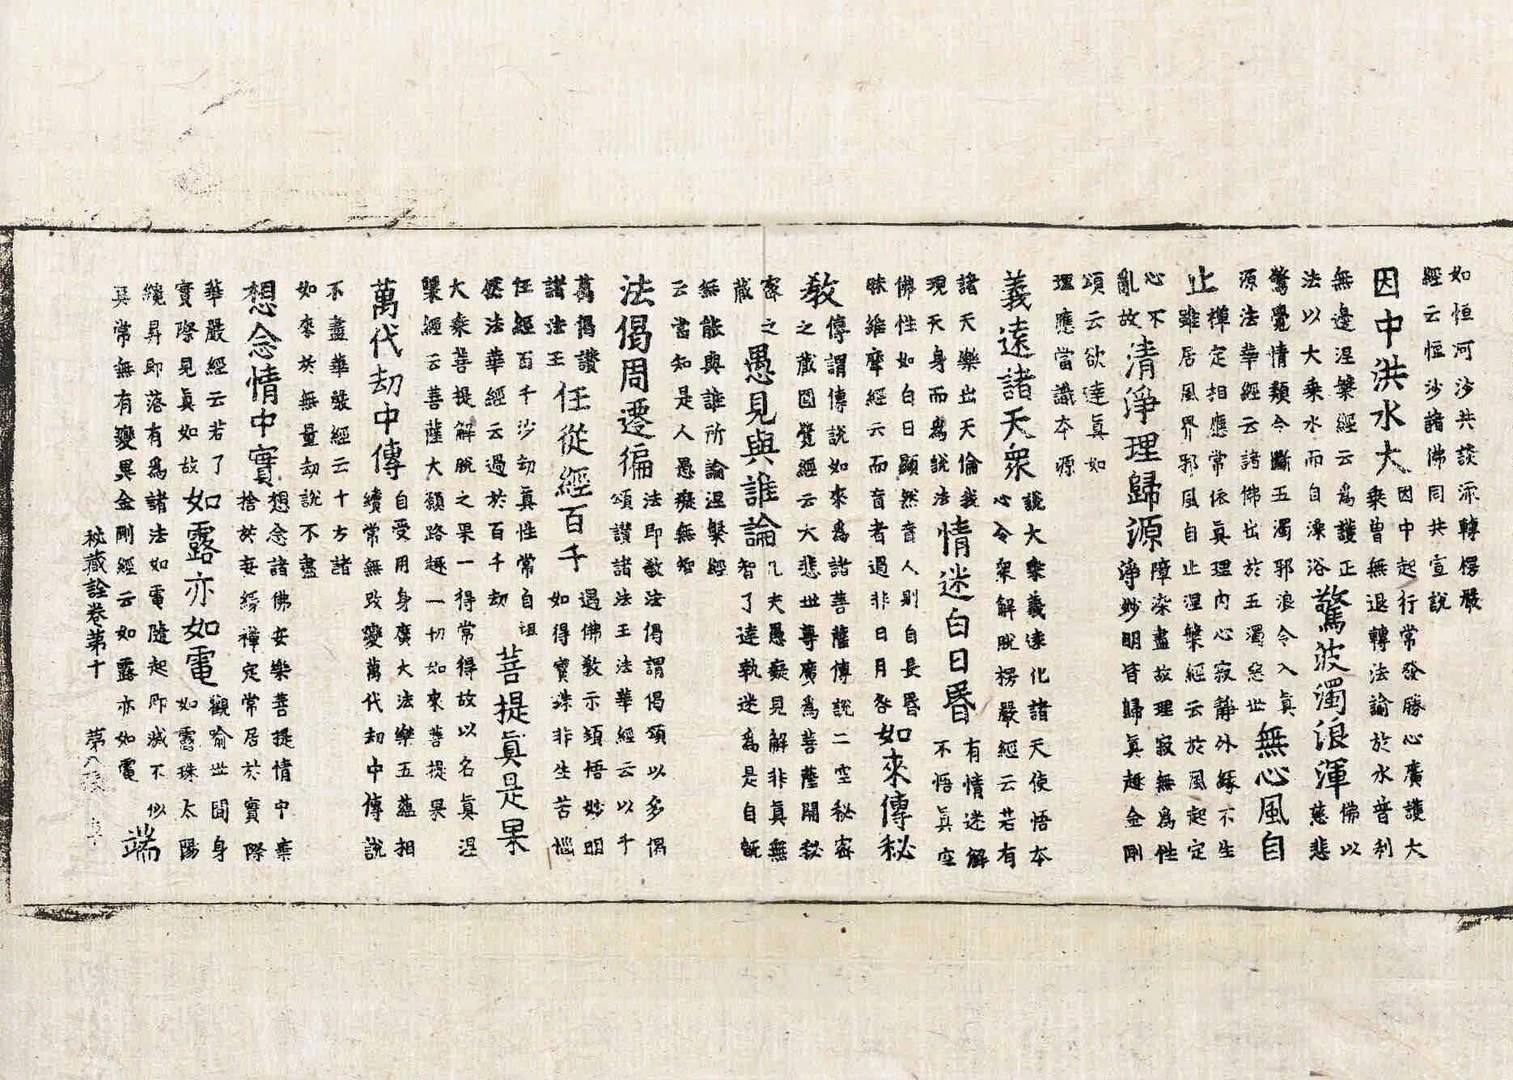 如恒河沙共談流轉楞嚴
經云恒沙諸佛同共宣說
因中洪水大
因中起行常發勝心廣護大
乘曾無退轉法論於水普利
無邊涅槃經云為護正
法以大乘水而自澡浴
驚波濁浪渾
佛以
慈悲
警覺情類令斷五濁邪浪令入真
源法華經云諸佛出於五濁惡世
無心風自
止
禪定相應常依真理內心寂靜外緣不生
雖居風界邪風自止涅槃經云於風起定
心不
亂故
清淨理歸源
障染盡故理寂無為性
淨妙明皆歸真趣金剛
頌云欲達真如
理應當識本源
義遠諸天衆
說大乘義遠化諸天使悟本
心令衆解脫楞嚴經云若有
諸天樂出天倫我
現天身而為說法
情迷白日昏
有情迷解
不悟真空
佛性如白日顯然盲人則自長昏
昧維摩經云而盲者過非日月咎
如來傳秘
教
傳謂傳說如來為諸菩薩傳說二空秘密
之藏圓覺經云大悲世尊廣為菩薩開秘
密之
藏
愚見與誰論
凡夫愚癡見解非真無
智了達執迷為是自既
無能與誰所論涅槃經
云當知是人愚癡無智
法偈周遷徧
法即教法偈謂偈頌以多偈
頌讚諸法王法華經云以千
萬偈讚
諸法王
任從經百千
遇佛教示頌悟妙明
如得寶珠非生苦惱
任經百千沙劫真性常自
從法華經云過於百千劫
菩提真是果
大乘菩提解脫之果一得常得故以名真涅
槃經云菩薩大願路趣一切如來菩提果
萬代劫中傳
自受用身廣大法樂五蘊相
續常無改變萬代劫中傳說
不盡華嚴經云十方諸
如來於無量劫說不盡
想念情中實
想念諸佛安樂菩提情中棄
捨於妄緣禪定常居於實際
華嚴經云若了
實際見真如故
如露亦如電
觀喻世間身
如露珠太陽
纔昇即落有為諸法如電隨起即滅不似
真常無有變異金剛經云如露亦如電
端
秘藏詮卷第十 第八張